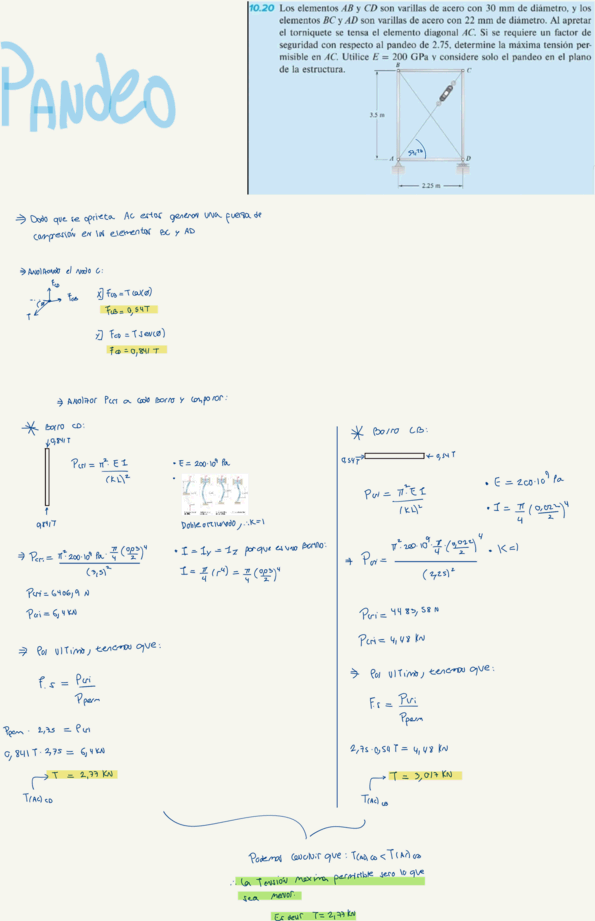 PANDEO
10.20 Los elementos AB y CD son varillas de acero con 30 mm de diámetro, y los
elementos BC y AD son varillas de acero con 22 mm de diámetro. Al apretar
el torniquete se tensa el elemento diagonal AC. Si se requiere un factor de
seguridad con respecto al pandeo de 2.75, determine la máxima tensión per-
misible en AC. Utilice E = 200 GPa y considere solo el pandeo en el plano
de la estructura.
B
C
3.5 m
A
D
2.25 m
⇒ Dado que se aprieta AC estar generos una fuerza de
compresión en los elementos BC y AD
⇒ Analizando el nodo C:
T
x] FCB = T cos(ø)
FCB = 0,54T
y] FCD = T sen(ø)
FCD = 0,841 T
⇒ Analizar Pcri a cada barra y comparar:
* Barra CD:
0,841T
Pcri = π²·EI / (KL)²
• E = 200·10⁹ Pa
Doble articulado, ∴ K=1
0,841T
⇒ Pcri = π²·200·10⁹ Pa·π/4 (0,03/2)⁴ / (3,5)²
• I = Iy = Iz porque es una barra:
I = π/4 (r⁴) = π/4 (0,03/2)⁴
Pcri = 6406,9 N
Pcri = 6,4 KN
⇒ Por ultimo, tenemos que:
F.s = Pcri / Pperm
Pperm · 2,75 = Pcri
0,841T · 2,75 = 6,4 KN
T = 2,77 KN
T(AC) CD
* Barra CB:
0,54T
0,54T
Pcri = π²·EI / (KL)²
• E = 200·10⁹ Pa
• I = π/4 (0,022/2)⁴
• K=1
⇒ Pcri = π²·200·10⁹·π/4 (0,022/2)⁴ / (2,25)²
Pcri = 4483,58 N
Pcri = 4,48 KN
⇒ Por ultimo, tenemos que:
F.s = Pcri / Pperm
2,75·0,54T = 4,48 KN
T = 3,017 KN
Podemos concluir que:
∴ La Tensión maxima permisible sera la que
sea menor.
Es decir T = 2,77 KN